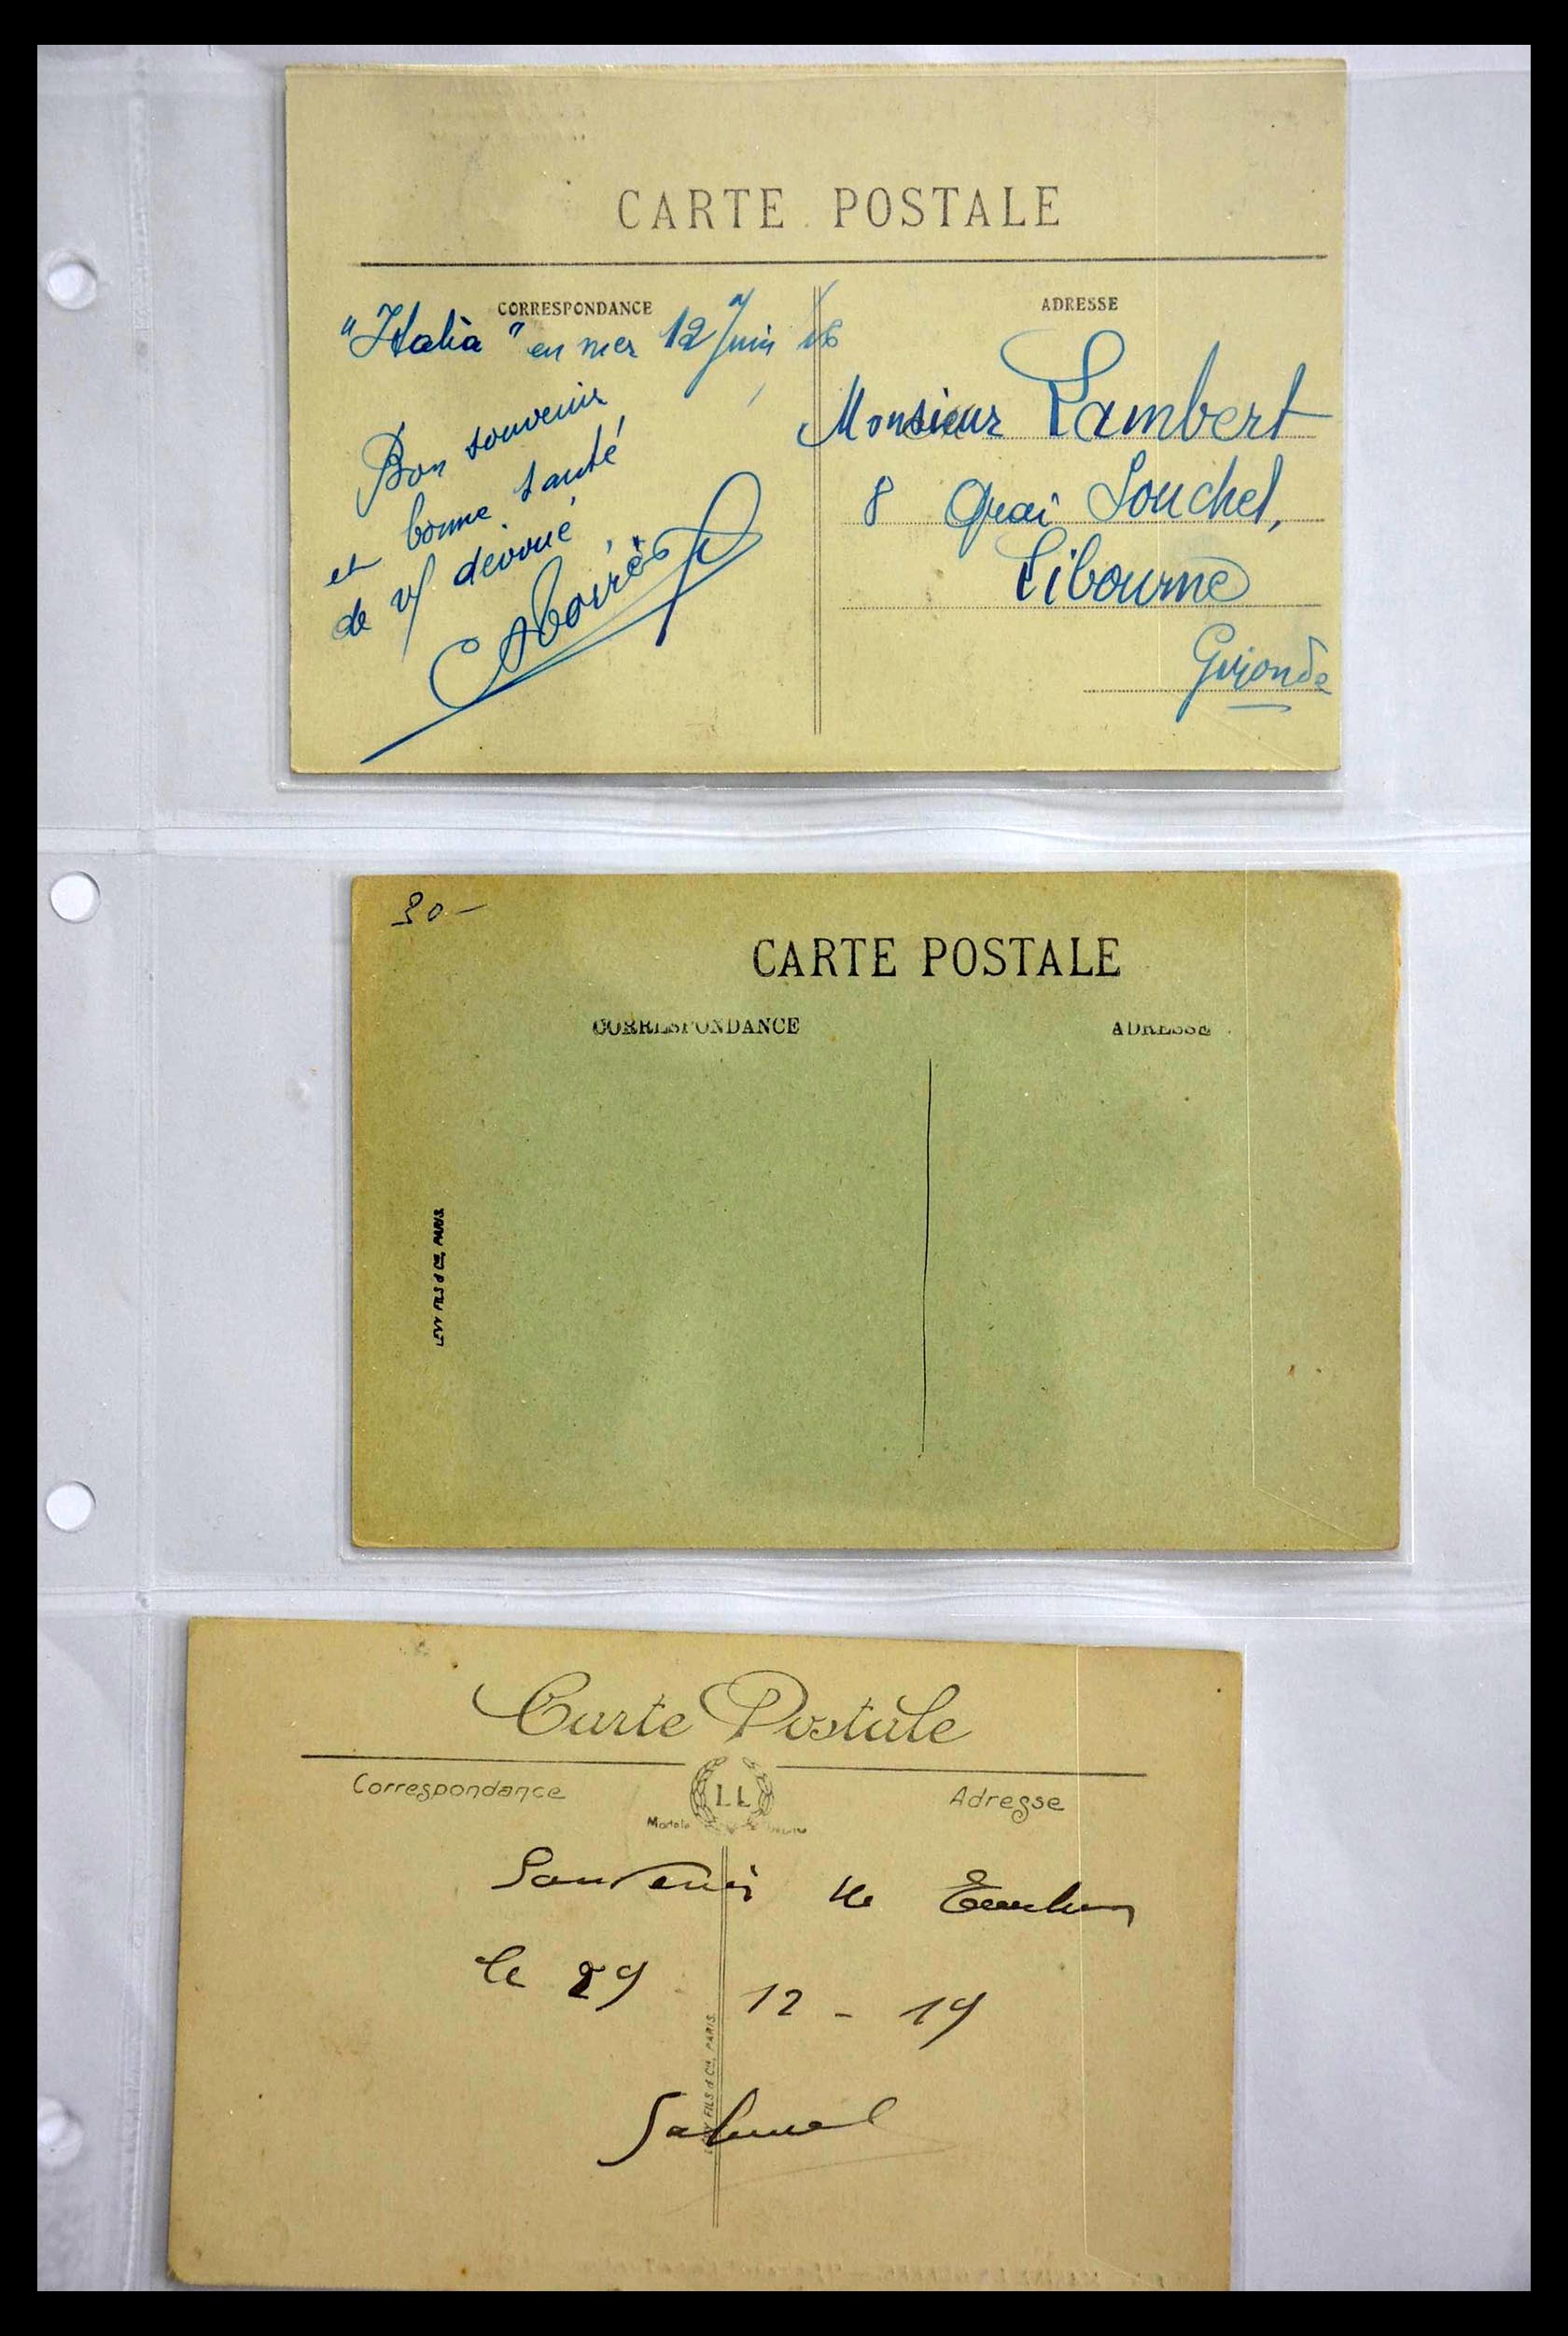 CARTE POSTALE
CORRESPONDANCE
ADRESSE
"Italia" en mer 12 Juin
Bon souvenir
et bonne santé
de v/ dévoué
Monsieur Lambert
8 Quai Souchet,
Libourne
Gironde
30-
CARTE POSTALE
CORRESPONDANCE
ADRESSE
LEVY FILS & Cie, PARIS
Carte Postale
Correspondance
LL
Adresse
Souvenir de
le 29 12 - 19
LEVY FILS & Cie, PARIS